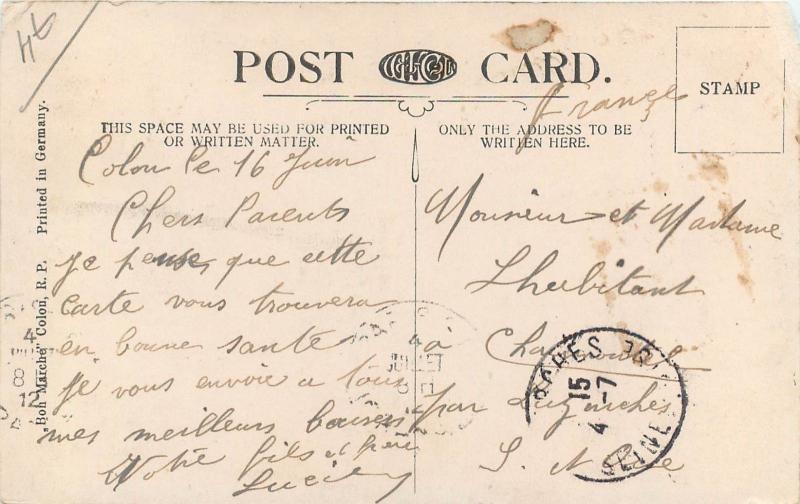 46
POST CARD.
France
STAMP
THIS SPACE MAY BE USED FOR PRINTED
OR WRITTEN MATTER.
ONLY THE ADDRESS TO BE
WRITTEN HERE.
"Bon Marché" Colon, R. P. Printed in Germany.
Colon le 16 Juin
Chers Parents
je pense que cette
carte vous trouvera
en bonne sante
je vous envoie a tous
mes meilleurs baisers
Votre fils et frère
Lucien
Monsieur et Madame
Lhabitant
à
par Luzarches
S. et Oise
JUILLET
15
4 -7
SEINE